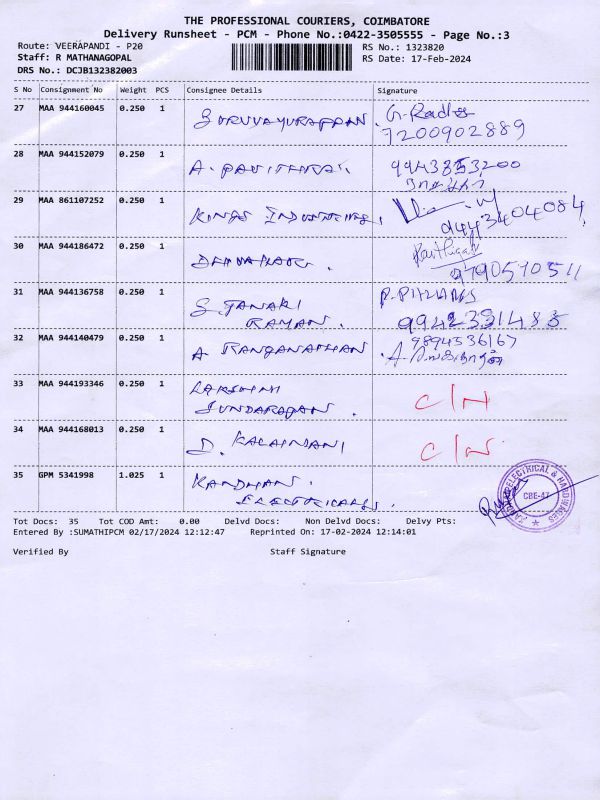 THE PROFESSIONAL COURIERS, COIMBATORE
Delivery Runsheet - PCM - Phone No.:0422-3505555 - Page No.:3
Route: VEERAPANDI - P20 RS No.: 1323820
Staff: R MATHANAGOPAL RS Date: 17-Feb-2024
DRS No.: DCJB132382003
S No Consignment No Weight PCS Consignee Details Signature
27 MAA 944160045 0.250 1 GURUVAYURAPPAN. G. Radha
7200902889
28 MAA 944152079 0.250 1 A. PAVITHRA. 9943853200
29 MAA 861107252 0.250 1 KINGS INDUSTRIES.
9443404084
30 MAA 944186472 0.250 1 Karthigai
9790570511
31 MAA 944136758 0.250 1 S. JANAKI
RAMAN. 9942331483
32 MAA 944140479 0.250 1 A RANGANATHAN 9894536167
33 MAA 944193346 0.250 1 LAKSHMI
SUNDARAJAN. C/N
34 MAA 944168013 0.250 1 D. KALAIMANI C/N
35 GPM 5341998 1.025 1 KANDHAN.
ELECTRICALS.
ELECTRICAL & HARDWARES
CBE-47
Tot Docs: 35 Tot COD Amt: 0.00 Delvd Docs: Non Delvd Docs: Delvy Pts:
Entered By :SUMATHIPCM 02/17/2024 12:12:47 Reprinted On: 17-02-2024 12:14:01
Verified By Staff Signature